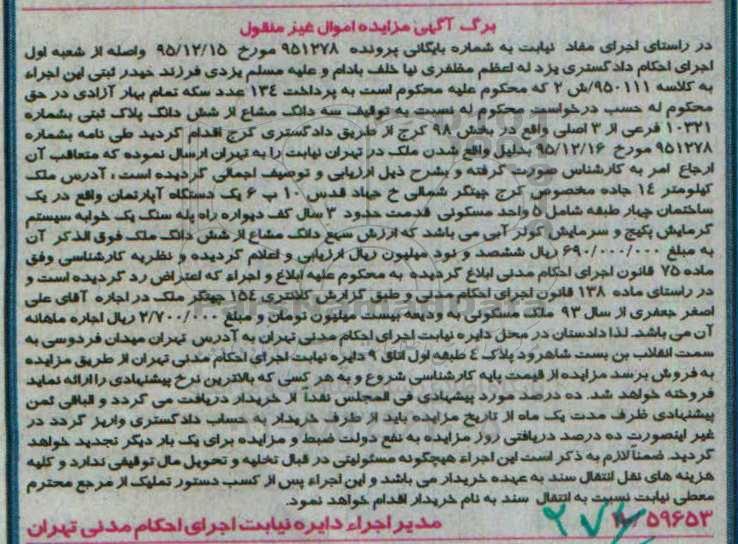 برگ آگهی مزایده اموال غیر منقول
در راستای اجرای مفاد نیابت به شماره بایگانی پرونده ۹۵۱۲۷۸ مورخ ۹۵/۱۲/۱۵ واصله از شعبه اول
اجرای احکام دادگستری یزد له اعظم مظفری نیا خلف بادام و علیه مسلم یزدی فرزند حیدر ثبتی این اجراء
به کلاسه ۹۵۰۱۱۱/ش ۲ که محکوم علیه محکوم است به پرداخت ۱۳۴ عدد سکه تمام بهار آزادی در حق
محکوم له حسب درخواست محکوم له نسبت به توقیف سه دانگ مشاع از شش دانگ پلاک ثبتی بشماره
۱۰۳۲۱ فرعی از ۳ اصلی واقع در بخش ۹۸ کرج از طریق دادگستری کرج اقدام گردید طی نامه بشماره
۹۵۱۲۷۸ مورخ ۹۵/۱۲/۱۶ بدلیل واقع شدن ملک در تهران نیابت را به تهران ارسال نموده که متعاقب آن
ارجاع امر به کارشناس صورت گرفته و بشرح ذیل ارزیابی و توصیف اجمالی گردیده است ، آدرس ملک
کیلومتر ۱۴ جاده مخصوص کرج چیتگر شمالی خ جهاد قدس ۱۰ پ ۶ یک دستگاه آپارتمان واقع در یک
ساختمان چهار طبقه شامل ۵ واحد مسکونی قدمت حدود ۳ سال کف دیواره راه پله سنگ یک خوابه سیستم
گرمایش پکیج و سرمایش کولر آبی می باشد که ارزش سهع دانگ مشاع از شش دانگ ملک فوق الذکر آن
به مبلغ ۶۹۰/۰۰۰/۰۰۰ ریال ششصد و نود میلیون ریال ارزیابی و اعلام گردیده و نظریه کارشناسی وفق
ماده ۷۵ قانون اجرای احکام مدنی ابلاغ گردیده به محکوم علیه ابلاغ و اجراء که اعتراض رد گردیده است و
در راستای ماده ۱۳۸ قانون اجرای احکام مدنی و طبق گزارش کلانتری ۱۵۴ چیتگر ملک در اجاره آقای علی
اصغر جعفری از سال ۹۳ ملک مسکونی به ودیعه بیست میلیون تومان و مبلغ ۲/۷۰۰/۰۰۰ ریال اجاره ماهانه
آن می باشد. لذا دادستان در محل دایره نیابت اجرای احکام مدنی تهران به آدرس تهران میدان فردوسی به
سمت انقلاب بن بست شاهرود پلاک ٤ طبقه اول اتاق ۹ دایره نیابت اجرای احکام مدنی تهران از طریق مزایده
به فروش برسد مزایده از قیمت پایه کارشناسی شروع و به هر کسی که بالاترین نرخ پیشنهادی را ارائه نماید
فروخته خواهد شد. ده درصد مورد پیشنهادی فی المجلس نقداً از خریدار دریافت می گردد و الباقی ثمن
پیشنهادی ظرف مدت یک ماه از تاریخ مزایده باید از طرف خریدار به حساب دادگستری واریز گردد در
غیر اینصورت ده درصد دریافتی روز مزایده به نفع دولت ضبط و مزایده برای یک بار دیگر تجدید خواهد
گردید. ضمناً لازم به ذکر است این اجراء هیچگونه مسئولیتی در قبال تخلیه و تحویل مال توقیفی ندارد و کلیه
هزینه های نقل انتقال سند به عهده خریدار می باشد و این اجراء پس از کسب دستور تملیک از مرجع محترم
معطی نیابت نسبت به انتقال سند به نام خریدار اقدام خواهد نمود.
مدیر اجراء دایره نیابت اجرای احکام مدنی تهران
۵۹۶۵۳